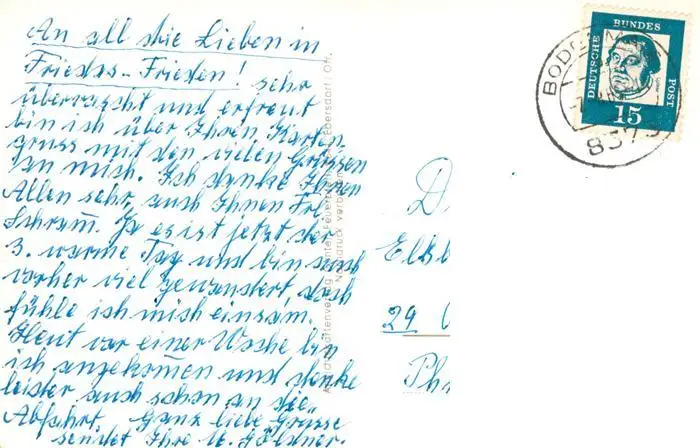 An all die Lieben in
Friedas-Frieden! Sehr
überrascht und erfreut
bin ich über Ihren Karten
gruss mit den vielen Grüssen
an mich. Ich danke Ihnen
Allen sehr, auch Ihnen Frl.
Schram̄. Ja es ist jetzt der
3. warme Tag und bin auch
vorher viel gewandert, doch
fühle ich mich einsam.
Heut vor einer Woche bin
ich angekom̄en und denke
leider auch schon an die
Abfahrt. Ganz liebe Grüsse
sendet Ihre
Ansichtskartenverlag
Ebersdorf/Ofr.
Nachdruck verboten
DEUTSCHE
BUNDES
POST
15
BODE
8373
D
Elsb
29
Ph